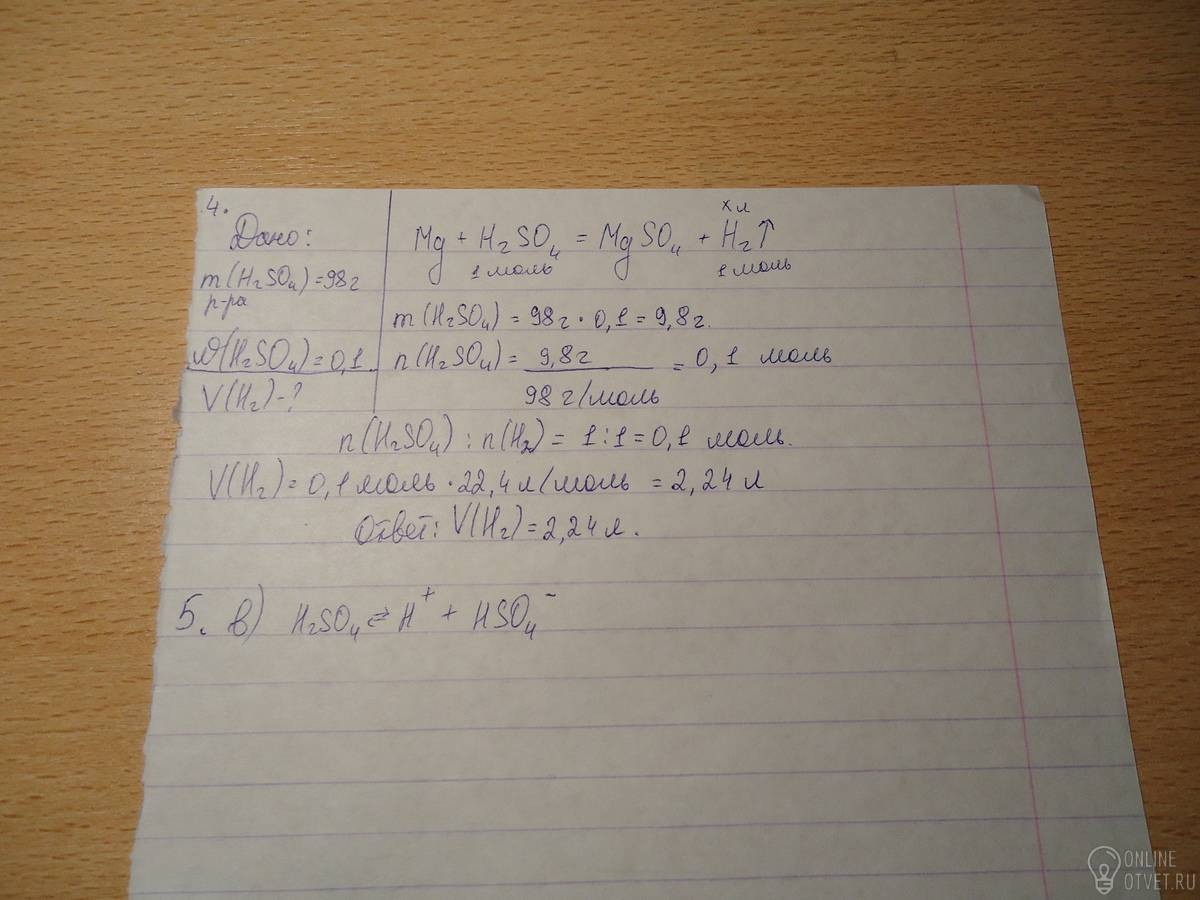 4.
Дано:
m(H₂SO₄)=98г
р-ра
ω(H₂SO₄)=0,1.
V(H₂)-?
x л
Mg + H₂SO₄ = MgSO₄ + H₂↑
1 моль 1 моль
m(H₂SO₄) = 98г · 0,1 = 9,8г.
n(H₂SO₄) = 9,8г = 0,1 моль
98 г/моль
n(H₂SO₄) : n(H₂) = 1:1 = 0,1 моль.
V(H₂) = 0,1 моль · 22,4 л/моль = 2,24 л
Ответ: V(H₂) = 2,24 л.
5. в) H₂SO₄ ⇄ H⁺ + HSO₄⁻
ONLINE
OTVET.RU